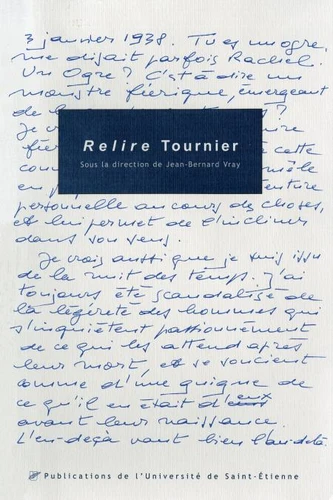 3 janvier 1938. Tu es un ogre,
me disait parfois Rachel.
Un Ogre? C'est-à-dire un
monstre féerique, émergeant
de
Je
Relire Tournier
Sous la direction de Jean-Bernard Vray
cette
personnelle au cours des choses,
et lui permet de l'incliner
dans son sens.
Je crois aussi que je suis issu
de la nuit des temps. J'ai
toujours été scandalisé de
la légèreté des hommes qui
s'inquiètent passionnément
de ce qui les attend après
leur mort, et se soucient
comme d'une guigne de
ce qu'il en était d'eux
avant leur naissance.
L'en-deçà vaut bien l'au-delà.
Publications de l'Université de Saint-Étienne